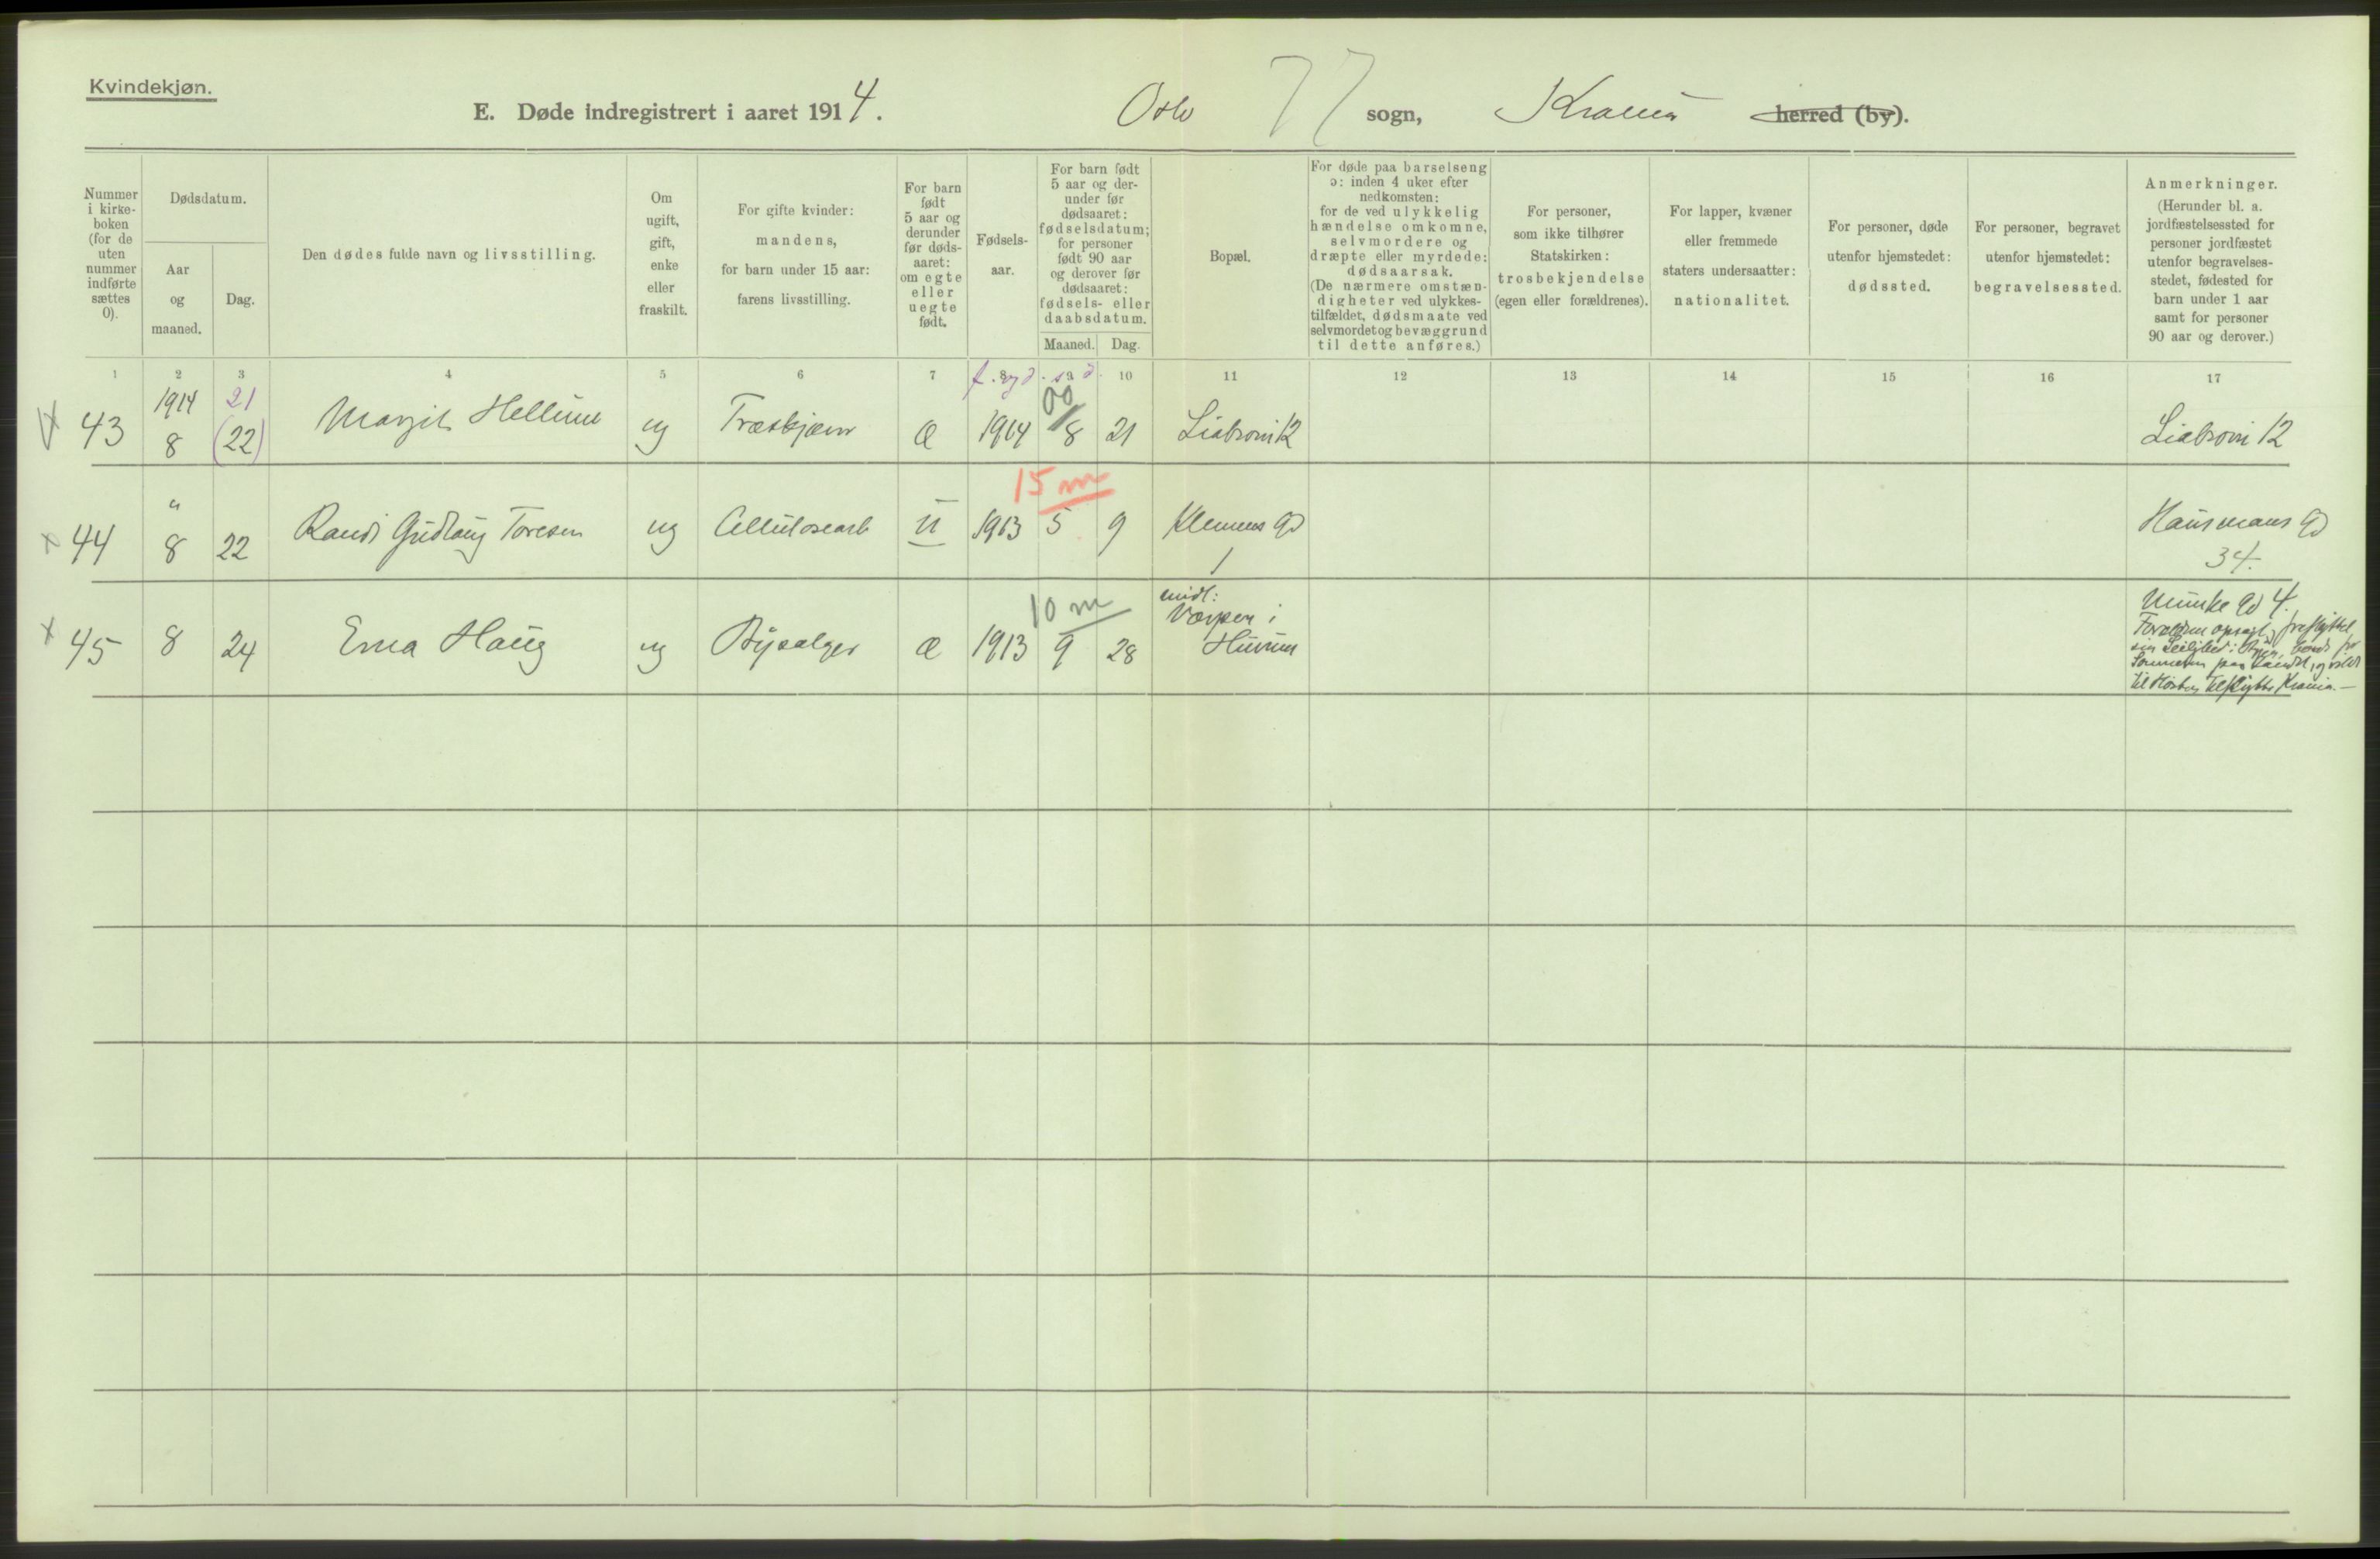 Kvindekjøn.
E. Døde indregistrert i aaret 1914. Oslo 77 sogn, Krania herred (by).
Nummer
i kirke-
boken
(for de
uten
nummer
indførte
sættes
0).
Dødsdatum.
Aar
og
maaned.
Dag.
Den dødes fulde navn og livsstilling.
Om
ugift,
gift,
enke
eller
fraskilt.
For gifte kvinder:
mandens,
for barn under 15 aar:
farens livsstilling.
For barn
født
5 aar og
derunder
før døds-
aaret:
om egte
eller
uegte
født.
Fødsels-
aar.
For barn født
5 aar og der-
under før
dødsaaret:
fødselsdatum;
for personer
født 90 aar
og derover før
dødsaaret:
fødsels- eller
daabsdatum.
Maaned. Dag.
Bopæl.
For døde paa barselseng
ɔ: inden 4 uker efter
nedkomsten:
for de ved ulykkelig
hændelse omkomne,
selvmordere og
dræpte eller myrdede:
dødsaarsak.
(De nærmere omstæn-
digheter ved ulykkes-
tilfældet, dødsmaate ved
selvmordet og bevæggrund
til dette anføres.)
For personer,
som ikke tilhører
Statskirken:
trosbekjendelse
(egen eller forældrenes).
For lapper, kvæner
eller fremmede
staters undersaatter:
nationalitet.
For personer, døde
utenfor hjemstedet:
dødssted.
For personer, begravet
utenfor hjemstedet:
begravelsessted.
Anmerkninger.
(Herunder bl. a.
jordfæstelsessted for
personer jordfæstet
utenfor begravelses-
stedet, fødested for
barn under 1 aar
samt for personer
90 aar og derover.)
1 2 3 4 5 6 7 8 9 10 11 12 13 14 15 16 17
f. og d. s. d.
1914 21 00
43 8 (22) Margit Hellum ug Træskjærer Æ 1914 8 21 Liabrovn 12 Liabrovn 12
15 m
44 " 8 22 Randi Gudlaug Toresen ug Cellulosearb U 1913 5 9 Klemens Gd 1 Hausmans Gd
34.
10 m
45 8 24 Erna Haug ug Bysælger Æ 1913 9 28 midl:
Værpen i
Hurum
Munke Gd 4.
Forældrene opsagt og fraflyttet
sin Leilighed i Byen, bode for
Sommeren paa Landet, og vilde
til Høsten tilflytte Krania. —